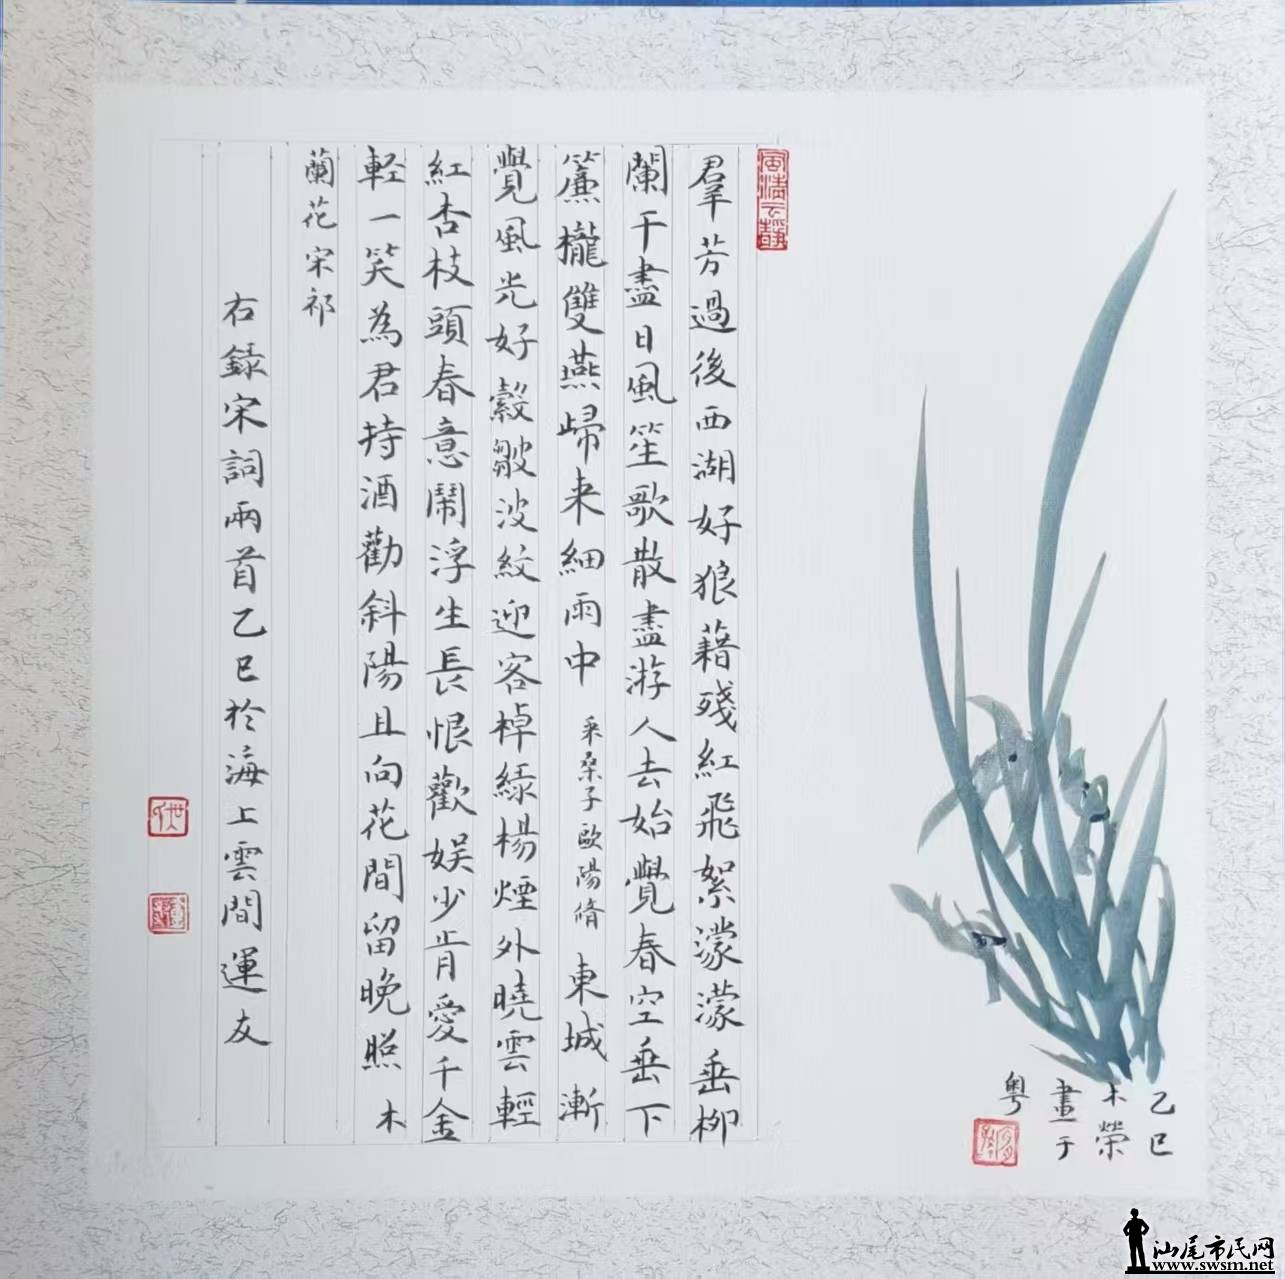 乙巳
木榮
畫于
粵
風清云靜
羣芳過後西湖好狼藉殘紅飛絮濛濛垂柳
闌干盡日風笙歌散盡游人去始覺春空垂下
簾櫳雙燕歸来細雨中 采桑子歐陽脩 東城漸
覺風光好縠皺波紋迎客棹綠楊煙外曉雲輕
紅杏枝頭春意鬧浮生長恨歡娛少肯愛千金
軽一笑為君持酒勸斜陽且向花間留晚照 木
蘭花宋祁
右録宋詞兩首乙巳於海上雲間運友
汕尾市民网
www.swsm.net